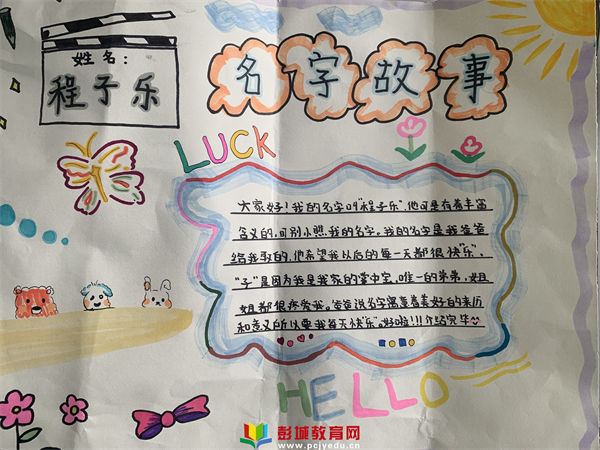 姓名：
程子乐
名字故事
LUCK
大家好！我的名字叫“程子乐”，他可是有着丰富
含义的，可别小瞧我的名字。我的名字是我爸爸
给我取的，他希望我以后的每一天都很快“乐”，
“子”是因为我是我家的掌中宝，唯一的弟弟，姐
姐都很疼爱我。爸爸说名字寓意着美好的来历
和意义所以要我每天快“乐”。好啦！！！介绍完毕
HELLO
彭城教育网
www.pcjyedu.cn